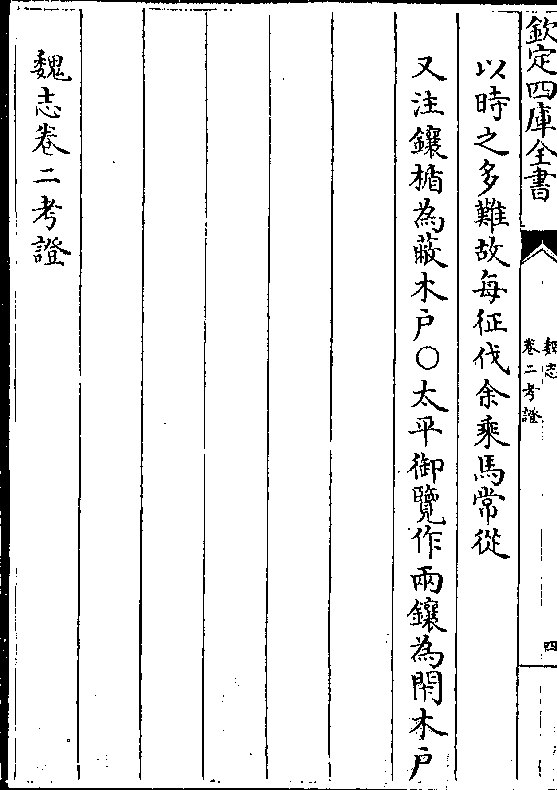 欽定四庫全書
魏志
卷二考證
四
以時之多難故每征伐余乘馬常從
又注鑲楯為蔽木戶○太平御覽作兩鑲為閉木戶
魏志卷二考證